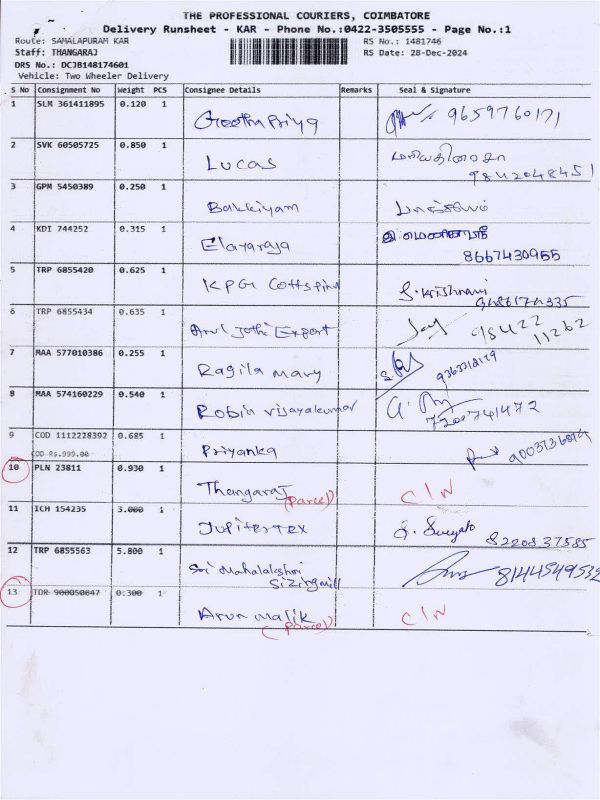 THE PROFESSIONAL COURIERS, COIMBATORE
Delivery Runsheet - KAR - Phone No.:0422-3505555 - Page No.:1
Route: SAMALAPURAM KAR
RS No.: 1481746
Staff: THANGARAJ
RS Date: 28-Dec-2024
DRS No.: DCJB148174601
Vehicle: Two Wheeler Delivery
S No Consignment No Weight PCS Consignee Details Remarks Seal & Signature
1 SLM 361411895 0.120 1 Geetha Priya 9659760171
2 SVK 60505725 0.850 1 Lucas
9842048451
3 GPM 5450389 0.250 1 Bakkiyam பாக்கியம்
4 KDI 744252 0.315 1 Elayaraja
8667430955
5 TRP 6855420 0.625 1 KPG Cottspin S. Krishnani
6 TRP 6855434 0.635 1 Arul Jothi Export Jay 98422
11262
7 MAA 577010386 0.255 1 Ragila mary
8 MAA 574160229 0.540 1 Robin vijayakumar
7200741472
9 COD 1112228392 0.685 1 Priyanka
COD Rs.999.00
10 PLN 23811 0.930 1 Thangaraj C/N
(Parcel)
11 ICH 154235 3.000 1 Jupitertex 8220837585
12 TRP 6855563 5.800 1 Sri Mahalakshmi
Sizing mill 8144549532
13 TDR 900050847 0.300 1 Arun Malik C/N
(Parcel)